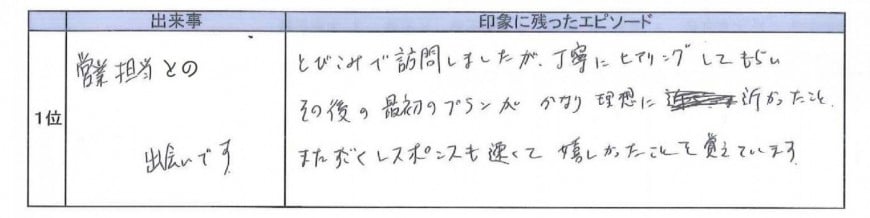 出来事
印象に残ったエピソード
1位
営業担当との
出会いです
とびこみで訪問しましたが、丁寧にヒアリングしてもらい
その後の最初のプランが かなり理想に 近かったこと。
またすごくレスポンスも速くて 嬉しかったことを覚えています